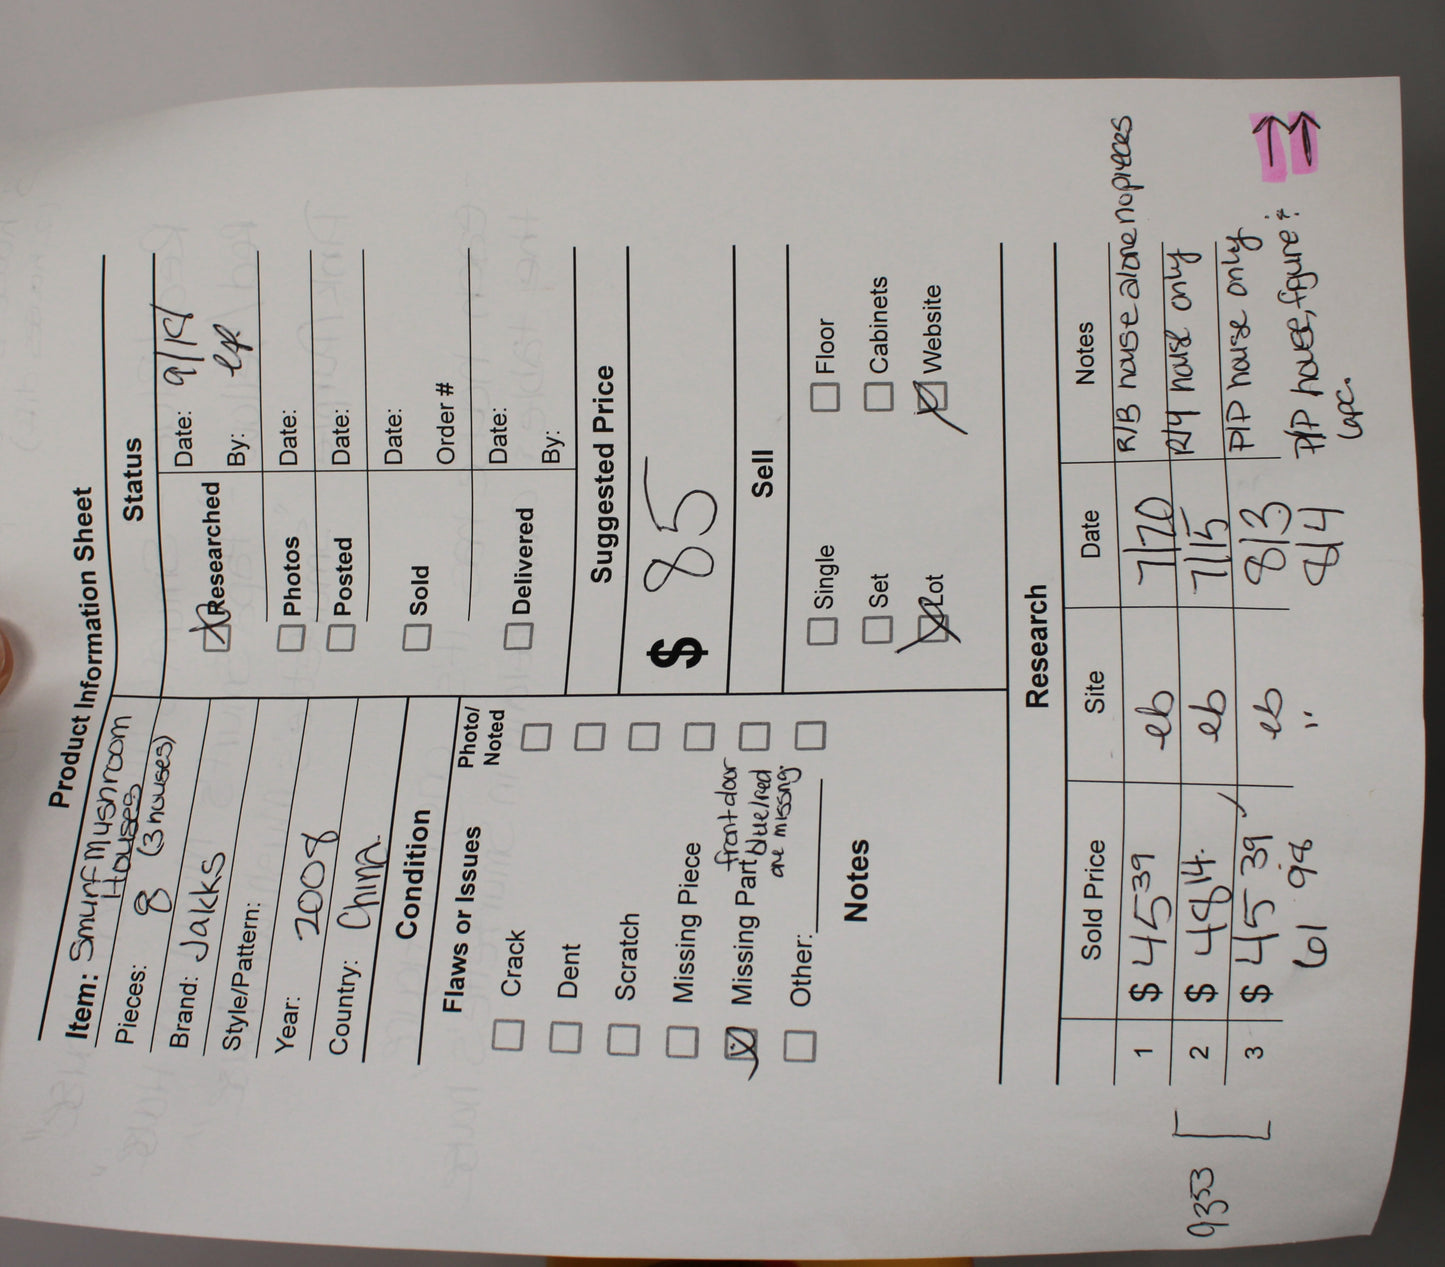 Product Information Sheet
Item: Smurf Mushroom
Houses
Pieces: 8 (3 houses)
Brand: Jakks
Style/Pattern:
Year: 2008
Country: China
Condition
Flaws or Issues
Photo/
Noted
Crack
Dent
Scratch
Missing Piece
Missing Part front door
blue/red
one missing.
Other:
Notes
Status
Researched
Date:
By:
Photos Date:
Posted Date:
Sold
Date:
Order #
Delivered
Date:
By:
Suggested Price
$ 85
Sell
Single Floor
Set Cabinets
Lot Website
Research
Sold Price Site Date Notes
1 $ 45 39 eb 7/20 R/B house alone no pieces
2 $ 48 14. eb 7/15 R/Y house only
3 $ 45 39 eb 8/3 P/P house only
61 98 " 8/4 P/P house, figure +
9353